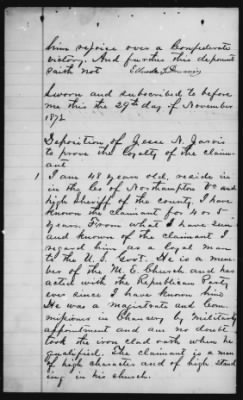 him rejoice over a Confederate
victory. And further this deponent
saith not
Sworn and subscribed to before
me this the 29th day of November
187
Deposition of Jesse N. Jarvis
to prove the loyalty of the claim-
ant
1 I am 48 years old, reside in
in the Co of Northampton Va and
high sheriff of the county, I have
known the claimant for 4 or 5
years. From what I have seen
and known of the claimant I
regard him as a loyal man
to the U.S. Govt. He is a mem-
ber of the M.E. Church and has
acted with the Republican Party
ever since I have known him
He was a magistrate and Com-
missioner in Chancery by military
appointment and am no doubt
took the iron clad oath when he
qualified. The claimant is a man
of high character and of high stand
ing in his church.